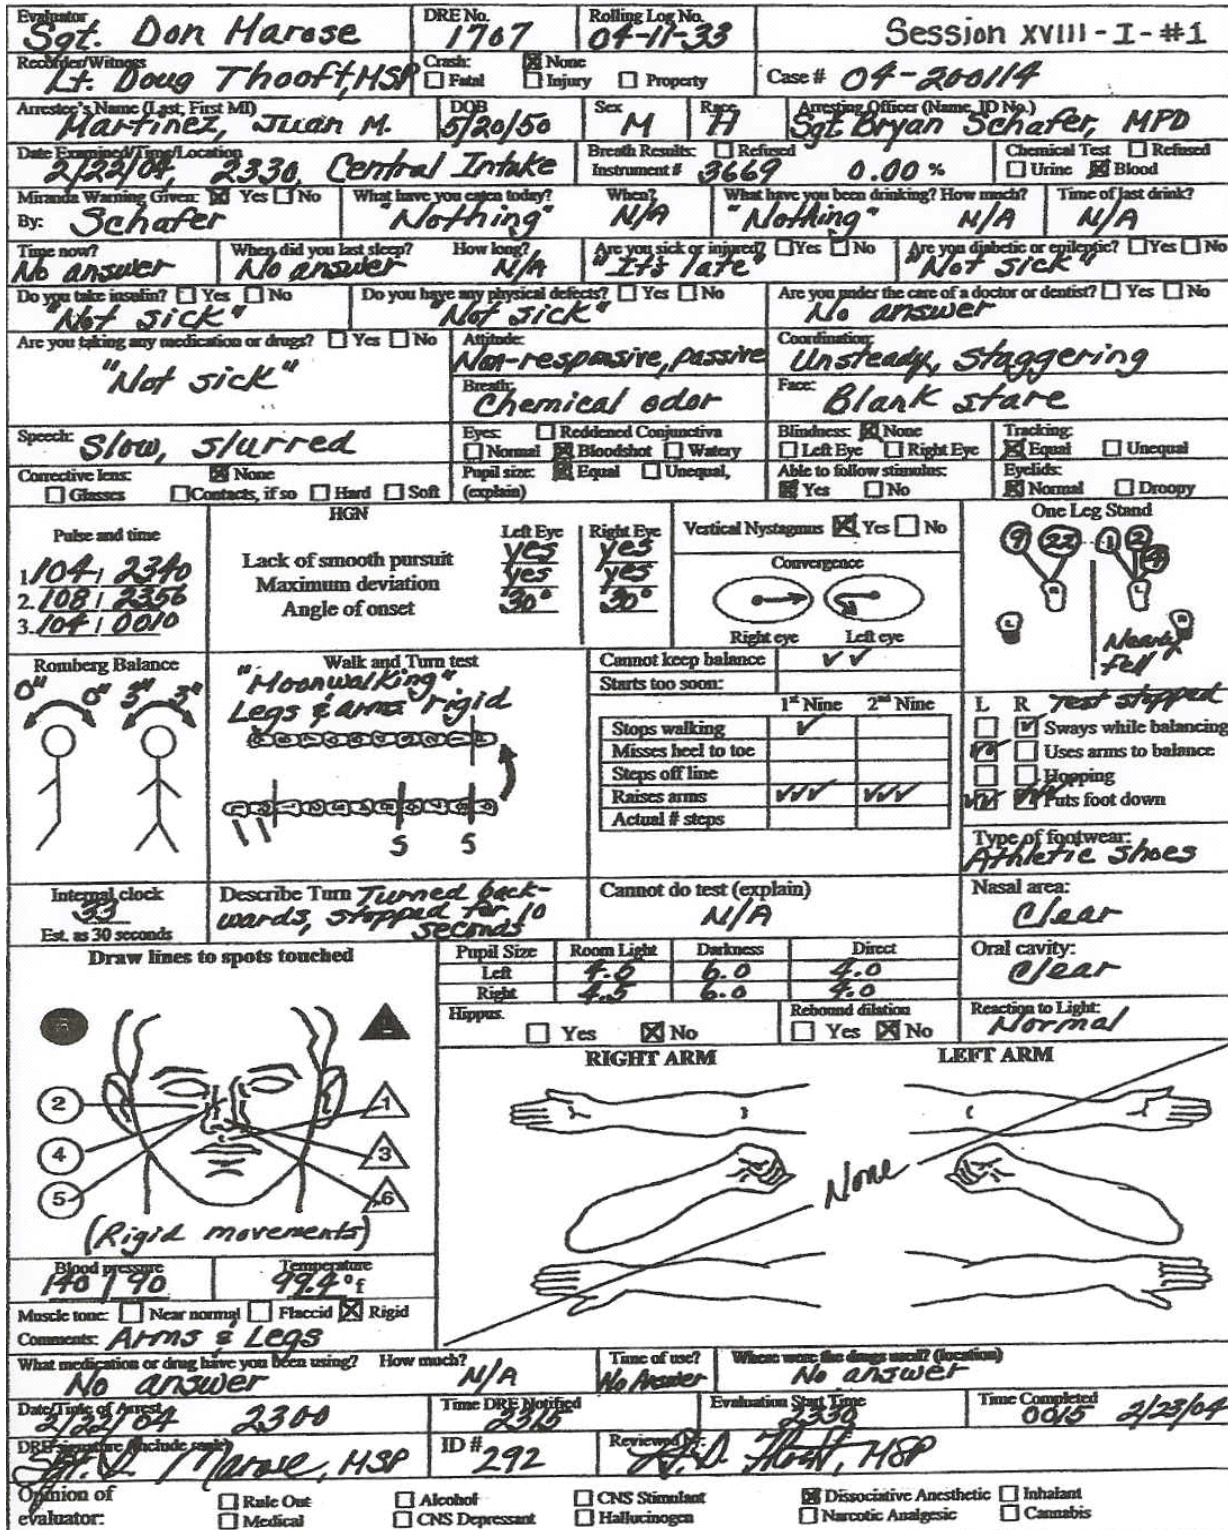 Evaluator Sgt. Don Marose DRE No. 1707 Rolling Log No. 04-11-33 Session XVIII - I - #1
Recorder/Witness Lt. Doug Thooft, MSP Crash: ☒ None ☐ Fatal ☐ Injury ☐ Property Case # 04-200114
Arrestee's Name (Last, First MI) Martinez, Juan M. DOB 5/20/50 Sex M Race H Arresting Officer (Name, ID No.) Sgt Bryan Schafer, MPD
Date Examined/Time/Location 2/22/04, 2330, Central Intake Breath Results: ☐ Refused Instrument # 3669 0.00 % Chemical Test ☐ Refused ☐ Urine ☒ Blood
Miranda Warning Given: ☒ Yes ☐ No By: Schafer What have you eaten today? "Nothing" When? N/A What have you been drinking? How much? "Nothing" N/A Time of last drink? N/A
Time now? No answer When did you last sleep? No answer How long? N/A Are you sick or injured? ☐ Yes ☐ No "It's late" Are you diabetic or epileptic? ☐ Yes ☐ No "Not sick"
Do you take insulin? ☐ Yes ☐ No "Not sick" Do you have any physical defects? ☐ Yes ☐ No "Not sick" Are you under the care of a doctor or dentist? ☐ Yes ☐ No No answer
Are you taking any medication or drugs? ☐ Yes ☐ No "Not sick" Attitude: Non-responsive, passive Coordination: Unsteady, staggering
Breath: Chemical odor Face: Blank stare
Speech: Slow, slurred Eyes: ☐ Reddened Conjunctiva ☐ Normal ☒ Bloodshot ☐ Watery Blindness: ☒ None ☐ Left Eye ☐ Right Eye Tracking: ☒ Equal ☐ Unequal
Corrective lens: ☒ None ☐ Glasses ☐ Contacts, if so ☐ Hard ☐ Soft Pupil size: ☒ Equal ☐ Unequal, (explain) Able to follow stimulus: ☒ Yes ☐ No Eyelids: ☒ Normal ☐ Droopy
Pulse and time
1. 104 / 2340
2. 108 / 2356
3. 104 / 0010
HGN Left Eye Right Eye
Lack of smooth pursuit yes yes
Maximum deviation yes yes
Angle of onset 30° 30°
Vertical Nystagmus ☒ Yes ☐ No
Convergence
Right eye Left eye
One Leg Stand
9 22 1 2 4
R L
L R
Nearly fell
Test stopped
Romberg Balance
0" 0" 3" 3"
Walk and Turn test
"Moonwalking"
Legs & arms rigid
S S
Cannot keep balance ✓✓
Starts too soon:
1st Nine 2nd Nine
Stops walking ✓
Misses heel to toe
Steps off line
Raises arms ✓✓✓ ✓✓✓
Actual # steps
L R
Sways while balancing
Uses arms to balance
Hopping
Puts foot down
Type of footwear: Athletic shoes
Internal clock 33 Est. as 30 seconds
Describe Turn Turned backwards, stopped for 10 seconds
Cannot do test (explain) N/A
Nasal area: Clear
Draw lines to spots touched
Pupil Size Room Light Darkness Direct
Left 6.0 4.0
Right 4.5 6.0 4.0
Oral cavity: Clear
Hippus ☐ Yes ☒ No Rebound dilation ☐ Yes ☒ No Reaction to Light: Normal
RIGHT ARM LEFT ARM
2 1
4 3
5 6
None
(Rigid movements)
Blood pressure 140 / 90 Temperature 99.4 °f
Muscle tone: ☐ Near normal ☐ Flaccid ☒ Rigid
Comments: Arms & Legs
What medication or drug have you been using? How much? No answer N/A Time of use? No Answer Where were the drugs used? (location) No answer
Date/Time of Arrest 2/22/04 2300 Time DRE Notified 2315 Evaluation Start Time 2330 Time Completed 0015 2/23/04
DRE signature (Include rank) Sgt. D. Marose, MSP ID # 292 Reviewed by: Lt. D. Thooft, MSP
Opinion of evaluator: ☐ Rule Out ☐ Alcohol ☐ CNS Stimulant ☒ Dissociative Anesthetic ☐ Inhalant
☐ Medical ☐ CNS Depressant ☐ Hallucinogen ☐ Narcotic Analgesic ☐ Cannabis